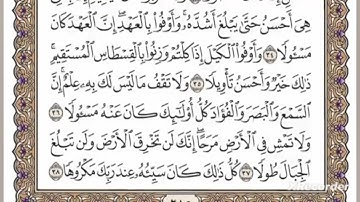 هِىَ أَحْسَنُ حَتَّىٰ يَبْلُغَ أَشُدَّهُۥ ۚ وَأَوْفُوا۟ بِٱلْعَهْدِ ۖ إِنَّ ٱلْعَهْدَ كَانَ
مَسْـُٔولًا ٣٤ وَأَوْفُوا۟ ٱلْكَيْلَ إِذَا كِلْتُمْ وَزِنُوا۟ بِٱلْقِسْطَاسِ ٱلْمُسْتَقِيمِ ۚ
ذَٰلِكَ خَيْرٌ وَأَحْسَنُ تَأْوِيلًا ٣٥ وَلَا تَقْفُ مَا لَيْسَ لَكَ بِهِۦ عِلْمٌ ۚ إِنَّ
ٱلسَّمْعَ وَٱلْبَصَرَ وَٱلْفُؤَادَ كُلُّ أُو۟لَـٰٓئِكَ كَانَ عَنْهُ مَسْـُٔولًا ٣٦
وَلَا تَمْشِ فِى ٱلْأَرْضِ مَرَحًا ۖ إِنَّكَ لَن تَخْرِقَ ٱلْأَرْضَ وَلَن تَبْلُغَ
ٱلْجِبَالَ طُولًا ٣٧ كُلُّ ذَٰلِكَ كَانَ سَيِّئُهُۥ عِندَ رَبِّكَ مَكْرُوهًا ٣٨